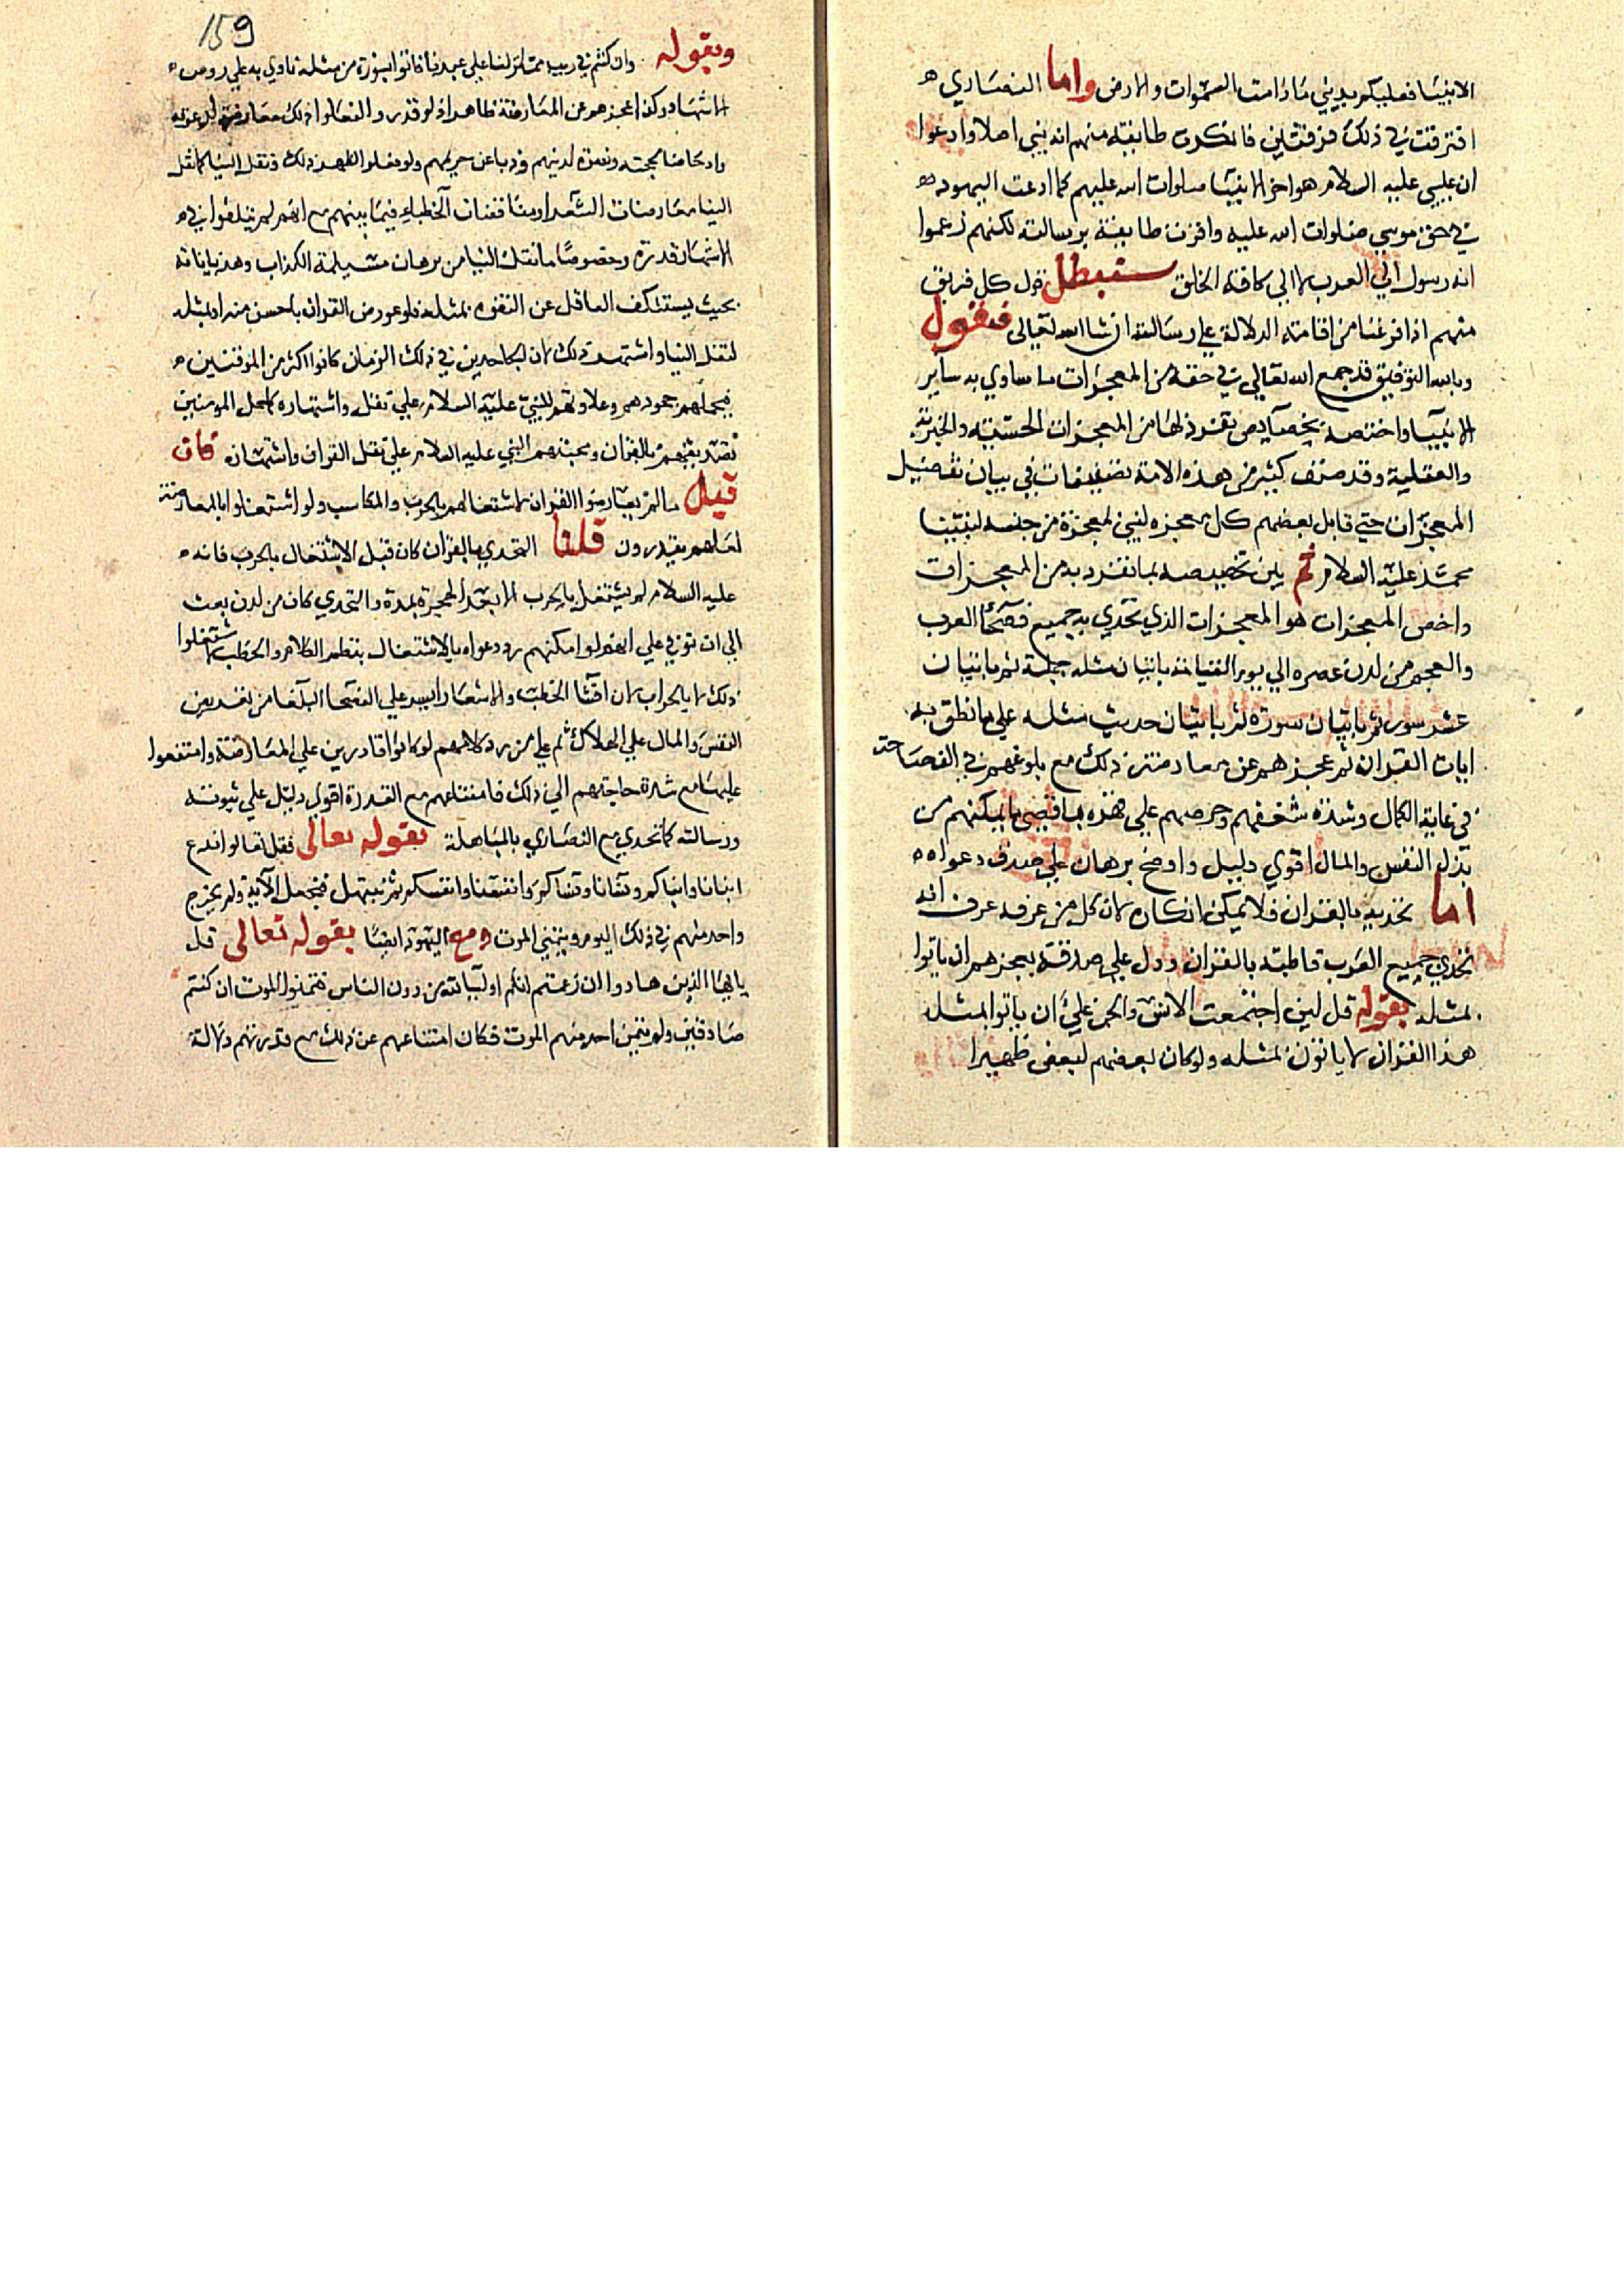 الانبيا فعليكم بديني ما دامت السموات والارض واما النصاري
افترقت في ذلك فرقتين فانكرت طايفة منهم انه نبي اصلا وادعوا
ان عيسي عليه السلام هو اخر الانبيا صلوات الله عليهم كما ادعت اليهود
في حق موسي صلوات الله عليه واقرت طايفة برسالته لكنهم زعموا
انه رسول الي العرب لا الي كافة الخلق سنبطل قول كل فريق
منهم اذا فرغنا من اقامة الدلالة علي رسالته ان شا الله تعالي فنقول
وبالله التوفيق قد جمع الله تعالي في حقه من المعجزات ما ساوي به ساير
الانبيا واختصه بخصايص تفرد لها من المعجزات الحسية والخبرية
والعقلية وقد صنف كثير من هذه الامة تصنيفات في بيان تفصيل
المعجزات حتي قابل بعضهم كل معجزه لنبي لمعجزة من جنسه لنبينا
محمد عليه السلام ثم بين تخصيصه بما تفرد به من المعجزات
واخص المعجزات هو المعجزات الذي تحدي به جميع فصحا العرب
والعجم من لدن عصره الي يوم القيامة باتيان مثله جملة ثم باتيان
عشر سور ثم باتيان سورة ثم باتيان حديث مثله علي ما نطق به
ايات القران ثم عجزهم عن معارضته ذلك مع بلوغهم في الفصاحة
في غاية الكمال وشدة شغفهم وحرصهم علي هذه باقصي ما يمكنهم من
بذل النفس والمال اقوي دليل واوضح برهان علي صدق دعواه
اما تحديه بالقران فلا يمكن انكاره لان كل من عرفه عرف انه
تحدي جميع العرب قاطبة بالقران ودل علي صدقه بعجزهم ان ياتوا
بمثله بقوله قل لين اجتمعت الانس والجن علي ان ياتوا بمثل
هذا القران لا ياتون بمثله ولو كان بعضهم لبعض ظهيرا
159
وبقوله وان كنتم في ريب مما نزلنا علي عبدنا فاتوا بسورة من مثله نادي به علي روس
الاشهاد وكذا عجزهم عن المعارضة ظاهر اذ لو قدروا لفعلوا ذلك معارضة لدعوته
وادحاضا لحجته ونصرة لدينهم وذبا عن حريمهم ولو فعلوا لظهر ذلك ونقل الينا كما نقل
الينا معارضات الشعرا ومناقضات الخطباء فيما بينهم مع انهم لم يبلغوا في
الاشتهار قدره وخصوصا ما نقل الينا من برهان مسيلمة الكذاب وهذياناته
بحيث يستنكف العاقل عن التفوه بمثله فلو عورض القران باحسن منه او بمثله
لنقل الينا واشتهر ذلك لان الجاحدين في ذلك الزمان كانوا اكثر من الموقنين
فيحملهم جحودهم وعداوتهم للنبي عليه السلام علي نقل واشتهاره كما حمل المومنين
تصديقهم بالقران ومحبتهم النبي عليه السلام علي نقل القران واشتهاره فان
قيل ما لم يعارضوا القران لاشتغالهم بالحرب والمكاسب ولو اشتغلوا بالمعارضة
لعلهم يقدرون قلنا التحدي بالقران كان قبل الاشتغال بالحرب فانه
عليه السلام لم يشتغل بالحرب الا بعد الهجرة بمدة والتحدي كان من لدن بعث
الي ان توفي علي انهم لو امكنهم رد دعواه بالاشتغال بنظم الكلام والخطب لاشتغلوا
ذلك لا بالحراب لان انشا الخطب والاشعار ايسر علي الفصحا البلغا من تعريض
النفس والمال علي الهلاك ثم علي من رد كلامهم لو كانوا قادرين علي المعارضة وامتنعوا
عليها مع شدة حاجتهم الي ذلك فامتناعهم مع القدرة اقوي دليل علي نبوته
ورسالته كما تحدي مع النصاري بالمباهلة بقوله تعالي فقل تعالوا ندع
ابنانا وابناكم ونسانا ونساكم وانفسنا وانفسكم ثم نبتهل فنجعل الاية ولم يخرج
واحد منهم في ذلك اليوم وبتمني الموت مع اليهود ايضا بقوله تعالي قل
يا ايها الذين هادوا ان زعمتم انكم اوليا لله من دون الناس فتمنوا الموت ان كنتم
صادقين ولم يتمن احد منهم الموت فكان امتناعهم عن ذلك مع قدرتهم دلالة